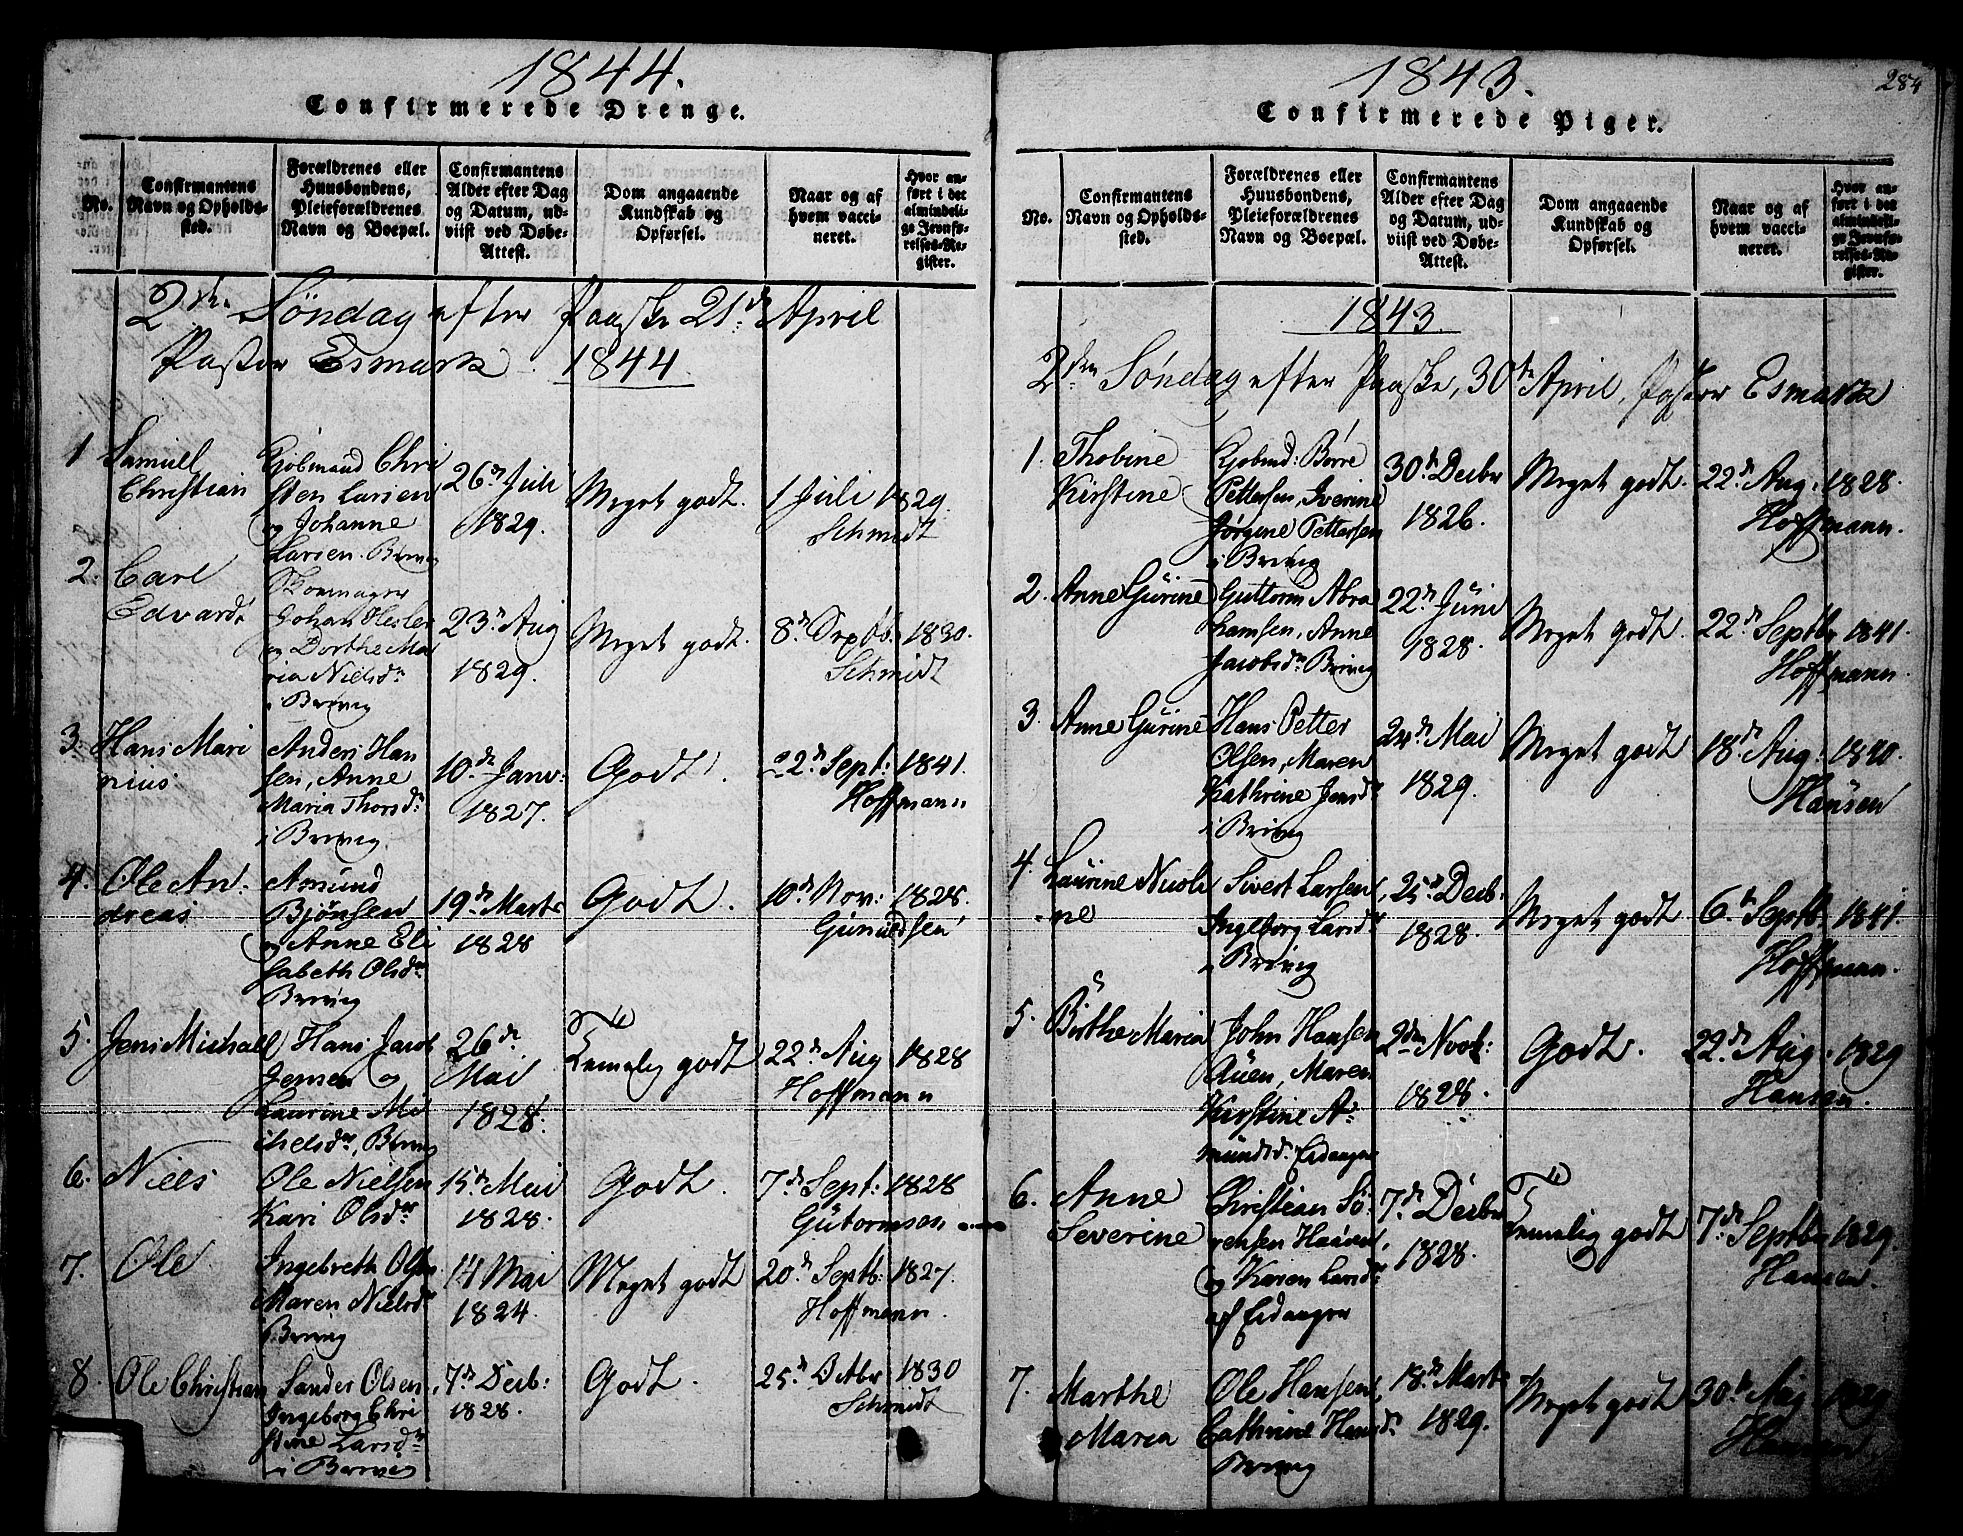 1844.
Confirmerede Drenge.
No.
Confirmantens
Navn og Opholds-
sted.
Forældrenes eller
Huusbondens,
Pleieforældrenes
Navn og Boepæl.
Confirmantens
Alder efter Dag
og Datum, ud-
viist ved Døbe-
Attest.
Dom angaaende
Kundskab og
Opførsel.
Naar og af
hvem vacci-
neret.
Hvor an-
ført i det
almindeli-
ge Jevnfø-
relses-Re-
gister.
2den Søndag efter Paaske 21de April
Pastor Esmark. 1844
1
Samuel
Christian
Gjøbmand Chri
sten Larsen
og Johanne
Larsen. Brevig
26de Juli
1829.
Meget godt.
1 Juli 1829.
Schmidt
2.
Carl
Edvardt
Skomager
Johan Hesler
og Dorthe Ma
ria Nielsdr
i Brevig
23de Aug
1829.
Meget godt.
8de 1830.
Schmidt
3.
Hans Mari
nius
Anders Han
sen, Anne
Maria Thorsdr
i Brevig
10de Janv:
1827.
Godt.
22de Sept: 1841.
Hoffmann
4.
Ole An.
dreas
Amund
Bjønsen
og Anne Eli
sabeth Olsdr
Brevig
19de Marts
1828
Godt.
10de Nov: 1828.
5.
Jens Michael
Hans Jacob
Jensen og
Laurine Mi
chelsdr, Brevig
26de
Mai
1828.
Temelig godt
22de Aug 1828
Hoffmann
6.
Niels
Ole Nielsen
Kari Olsdr
15de Mai
1828.
Godt.
7de Sept: 1828
Gutormsen
7.
Ole
Ingebreth Olsen
Maren Nielsdr
Brevig
14 Mai
1824.
Meget godt
20de Septb: 1827.
Hoffmann.
8.
Ole Christian
Sander Olsen,
Ingeborg Chri
stine Larsdr
i Brevig
7de Decb:
1828.
Godt.
25de Octbr 1830
Schmidt
1843.
284
Confirmerede Piger.
No.
Confirmantens
Navn og Opholds-
sted.
Forældrenes eller
Huusbondens,
Pleieforældrenes
Navn og Boepæl.
Confirmantens
Alder efter Dag
og Datum, ud-
viist ved Døbe-
Attest.
Dom angaaende
Kundskab og
Opførsel.
Naar og af
hvem vacci-
neret.
Hvor an-
ført i det
almindeli-
ge Jevnfø-
relses-Re-
gister.
1843
2den Søndag efter Paaske, 30de April, Pastor Esmark
1.
Thobine
Kirstine
Gjøbmd: Børre
Pettersen, Iverine
Jørgine Pettersen
i Brevig
30de Decbr
1826.
Meget godt.
22de Aug: 1828.
Hoffmann.
2.
Anne Gurine
Guttorm Abra
hamsen, Anne
Jacobsdr Brevig
22de Juni
1828.
Meget godt.
22de Septbr 1841.
Hoffmann.
3.
Anne Gurine
Hans Petter
Olsen, Maren
Kathrine Jensdr
i Brevig
24de Mai
1829.
Meget godt
18de Aug: 1840.
Hansen
4.
Laurine Nicoli
ne
Sivert Larsen,
Ingeborg Larsdr
i Brevig
25de Decb:
1828.
Meget godt
6te Septb: 1841.
Hoffmann.
5.
Birthe Maria
John Hansen
Auen, Maren
Kirstine A-
mundsd. Eidanger
2den Novb:
1828.
Godt.
22de Aug: 1829
Hansen.
6.
Anne
Severine
Christian Sø-
rensen Haaøen,
og Karen Larsdr
af Eidanger
7de Decbr
1828.
Temelig godt
7de Septbr 1829.
Hansen.
7.
Marthe
Maria
Ole Hansen,
Cathrine Hansdr
Brevig
18de Marts
1829.
Meget godt
30te Aug 1829
Hansen